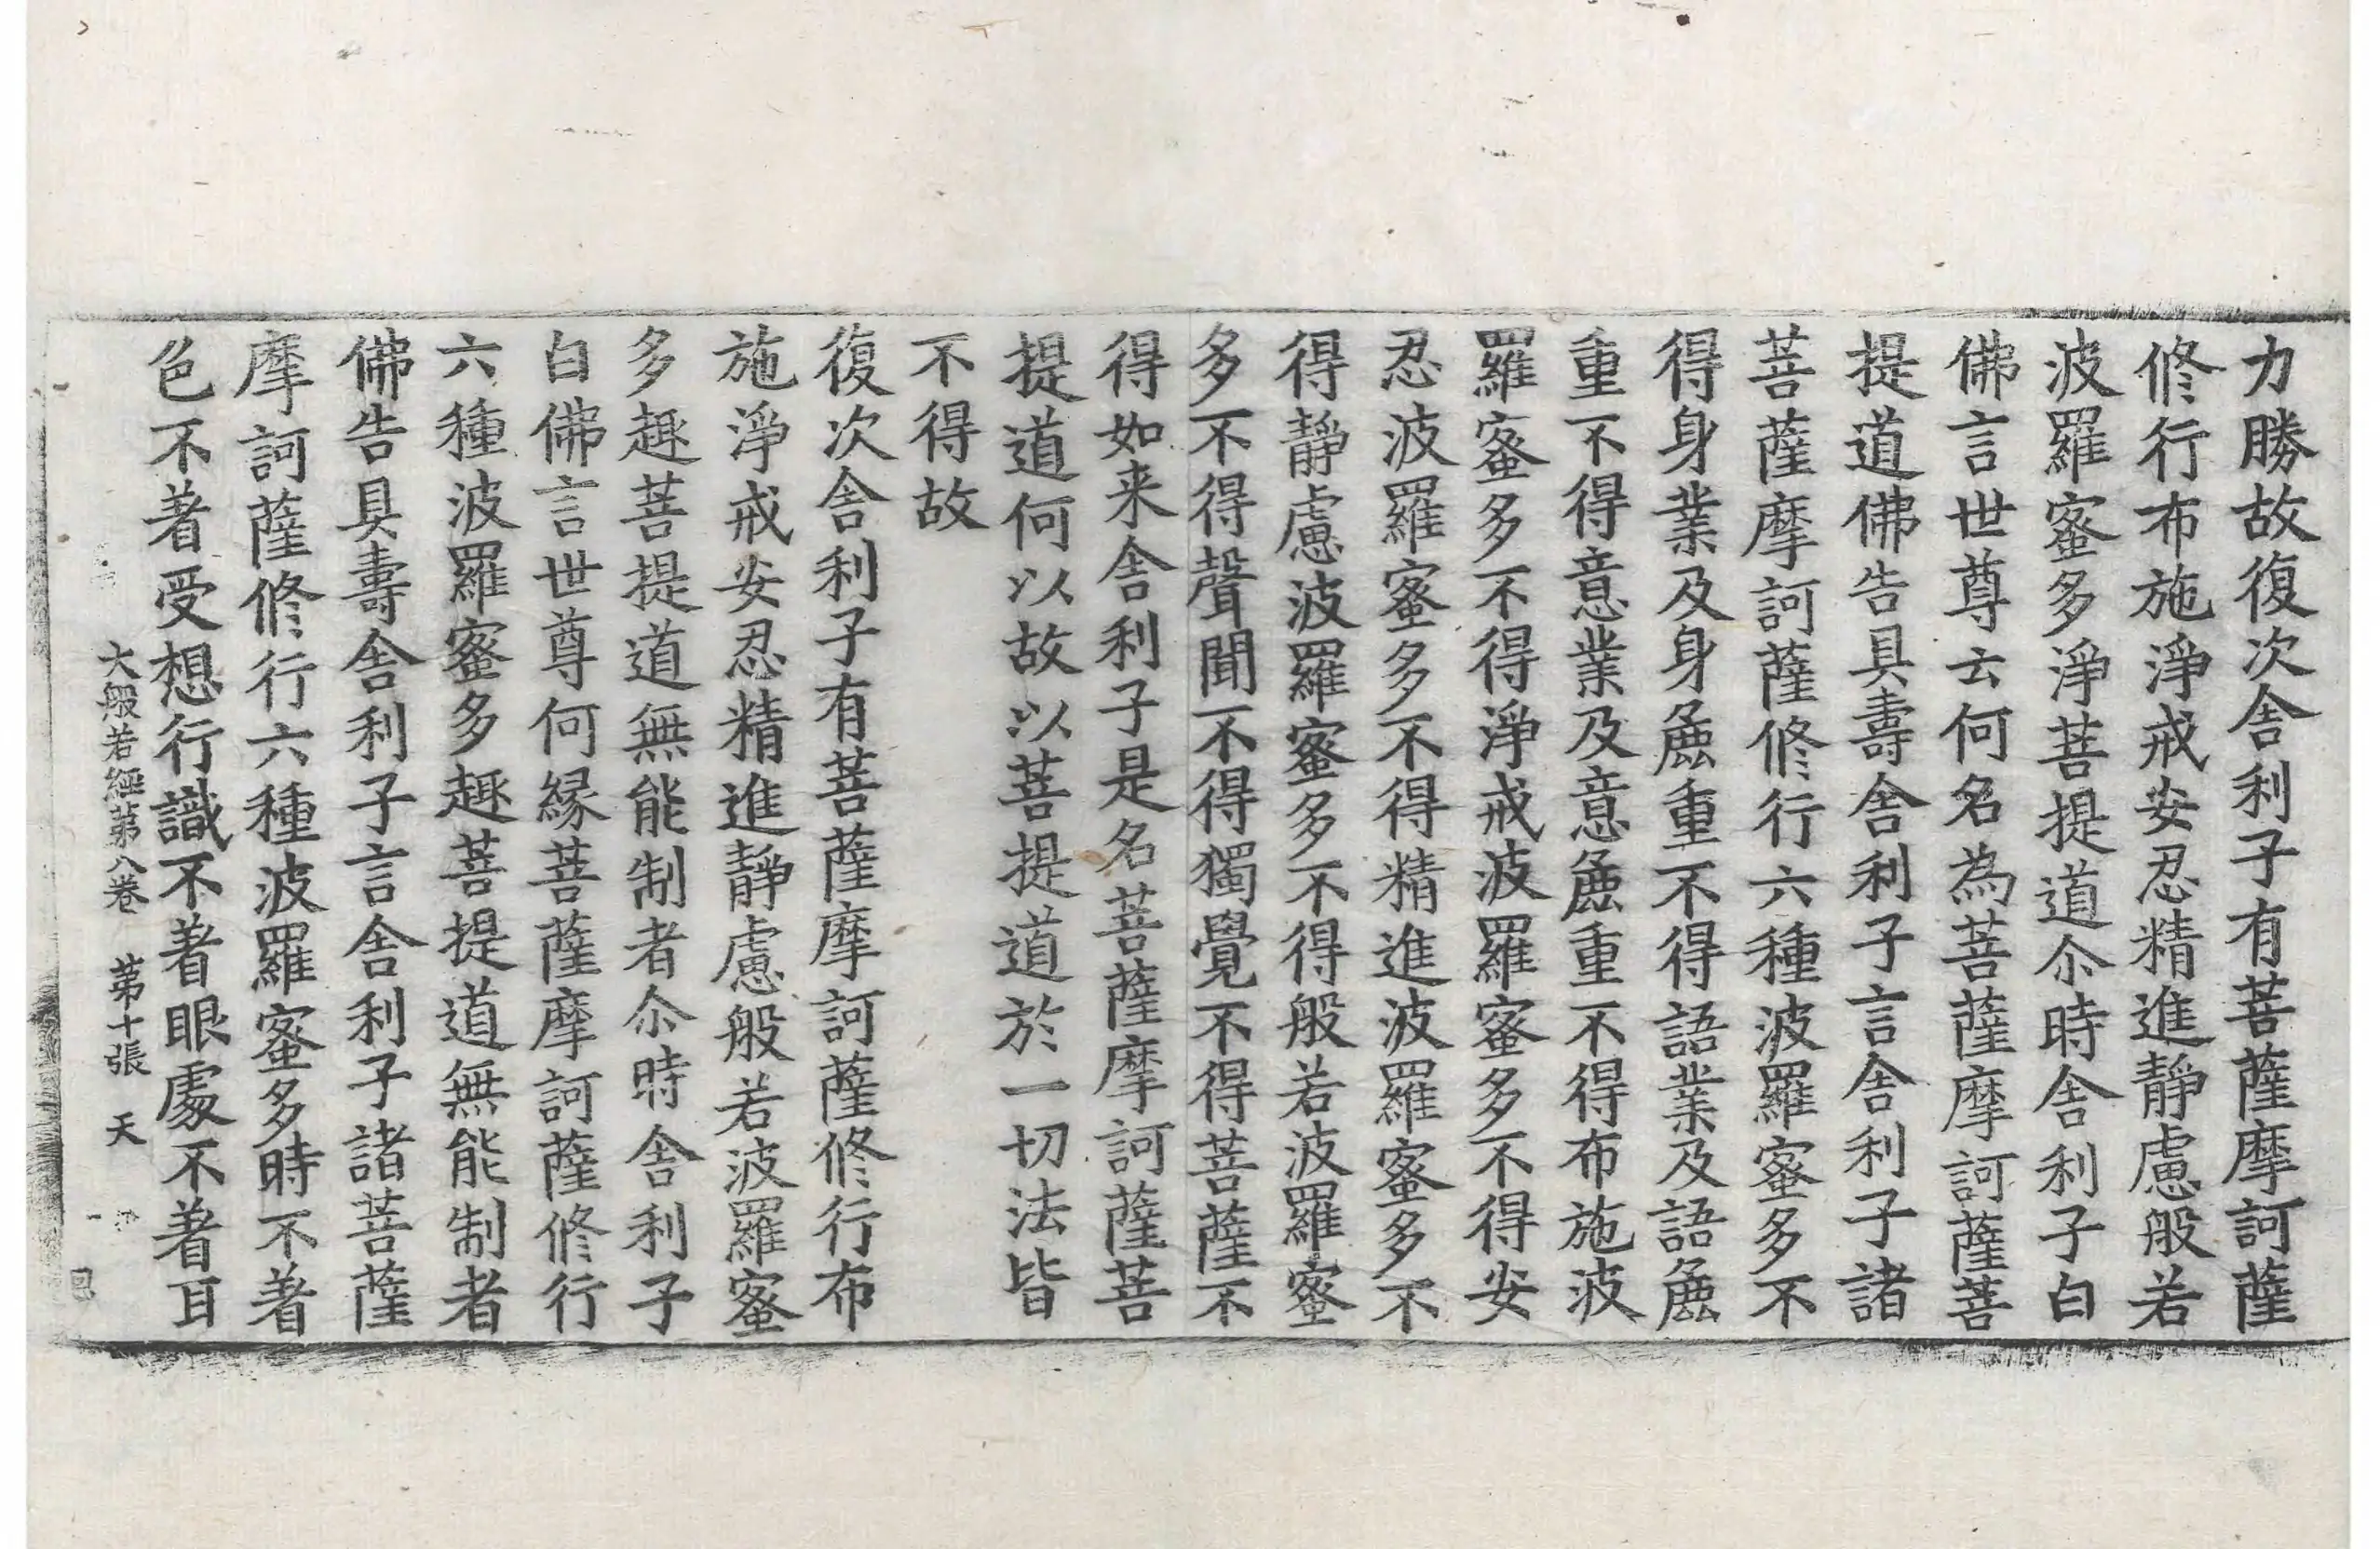 力勝故復次舎利子有菩薩摩訶薩
修行布施淨戒安忍精進靜慮般若
波羅蜜多淨菩提道尒時舎利子白
佛言世尊云何名為菩薩摩訶薩菩
提道佛告具壽舎利子言舎利子諸
菩薩摩訶薩修行六種波羅蜜多不
得身業及身麁重不得語業及語麁
重不得意業及意麁重不得布施波
羅蜜多不得淨戒波羅蜜多不得安
忍波羅蜜多不得精進波羅蜜多不
得靜慮波羅蜜多不得般若波羅蜜
多不得聲聞不得獨覺不得菩薩不
得如来舎利子是名菩薩摩訶薩菩
提道何以故以菩提道於一切法皆
不得故
復次舎利子有菩薩摩訶薩修行布
施淨戒安忍精進靜慮般若波羅蜜
多趣菩提道無能制者尒時舎利子
白佛言世尊何緣菩薩摩訶薩修行
六種波羅蜜多趣菩提道無能制者
佛告具壽舎利子言舎利子諸菩薩
摩訶薩修行六種波羅蜜多時不著
色不著受想行識不著眼處不著耳
大般若經第八卷 第十張 天